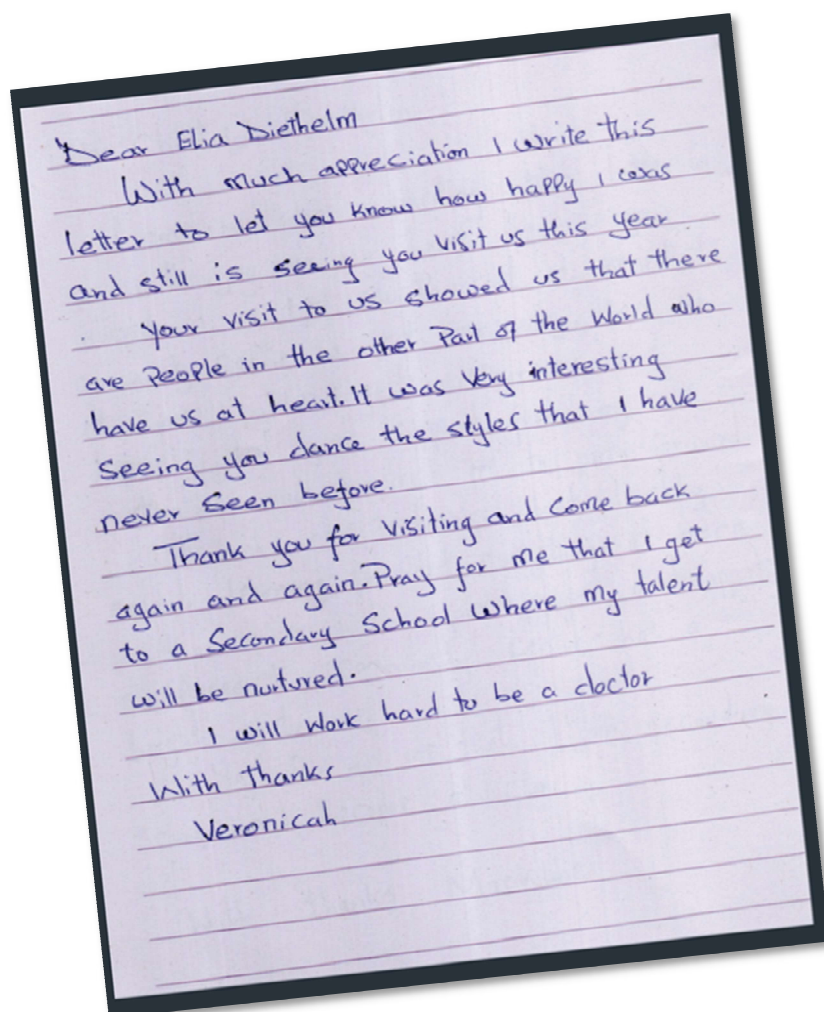 Dear Elia Diethelm
With much appreciation I write this
letter to let you know how happy I was
and still is seeing you visit us this year
Your visit to us showed us that there
are people in the other Part of the World who
have us at heart. It was Very interesting
Seeing you dance the styles that I have
never Seen before.
Thank you for visiting and Come back
again and again. Pray for me that I get
to a Secondary School Where my talent
will be nurtured.
I will Work hard to be a doctor
With thanks
Veronicah